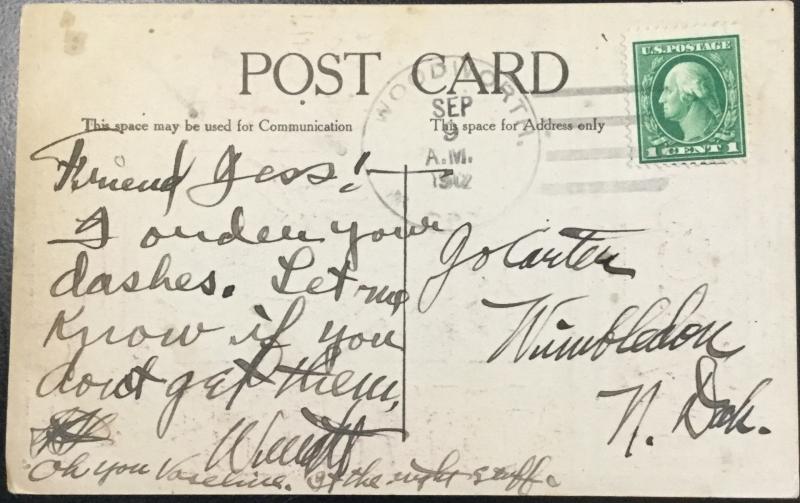 POST CARD
This space may be used for Communication
This space for Address only
WOODWORTH,
SEP
9
A.M.
U.S. POSTAGE
1 CENT 1
Friend Jess!
I order your
dashes. Let me
know if you
dont get them,
Oh you Vaseline. It the right stuff.
Jo Carter
Wimbledon,
N. Dak.